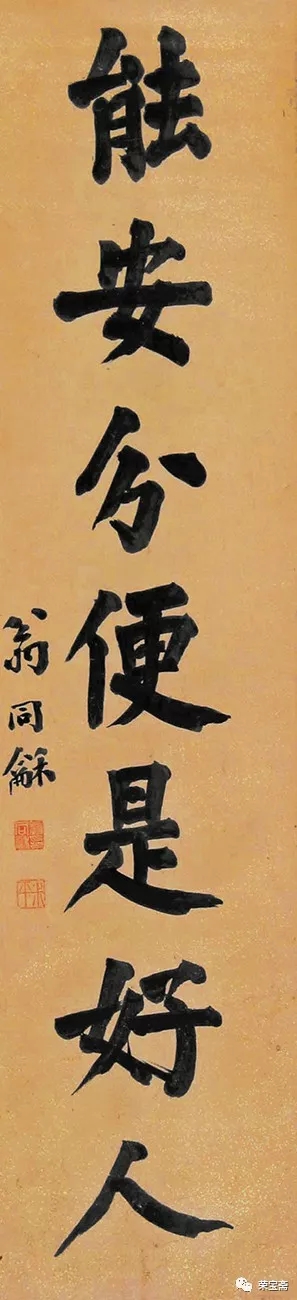 能安分便是好人
翁同龢
荣宝斋